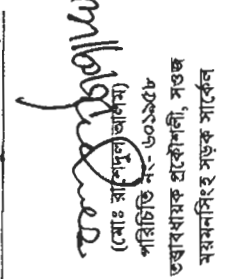 (মোঃ আলম)
পরিচিতি নং- ৬০১৯৫৮
তত্ত্বাবধায়ক প্রকৌশলী, সওজ
ময়মনসিংহ সড়ক সার্কেল